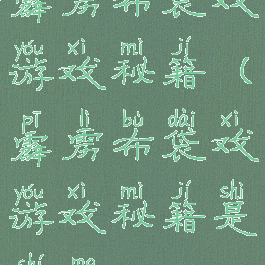 霹雳布袋戏
yóu xì mì jí
游戏秘籍（
pī lì bù dài xì
霹雳布袋戏
yóu xì mì jí shì
游戏秘籍是
shí me